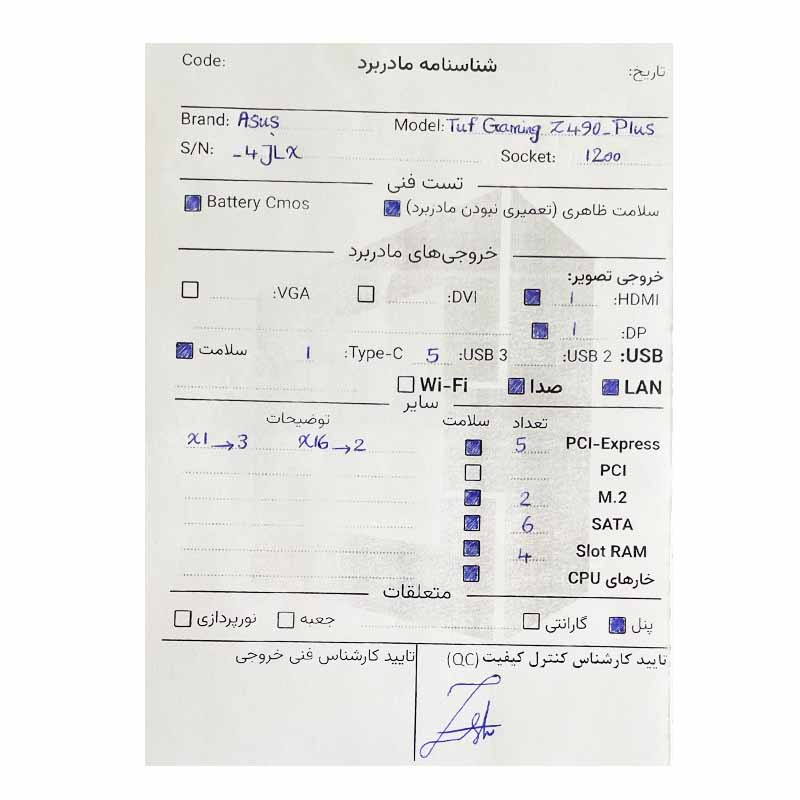 Code: شناسنامه مادربرد تاریخ:
Brand: Asus Model: Tuf Gaming Z490_Plus
S/N: _4JLX Socket: 1200
تست فنی
سلامت ظاهری (تعمیری نبودن مادربرد) Battery Cmos
خروجی‌های مادربرد
خروجی تصویر:
HDMI: 1 DVI: VGA:
DP: 1
USB: USB 2: USB 3: 5 Type-C: 1 سلامت
LAN صدا Wi-Fi
سایر
تعداد سلامت توضیحات
PCI-Express 5 x16→2 x1→3
PCI
M.2 2
SATA 6
Slot RAM 4
خارهای CPU
متعلقات
پنل گارانتی جعبه نورپردازی
تایید کارشناس کنترل کیفیت (QC) تایید کارشناس فنی خروجی